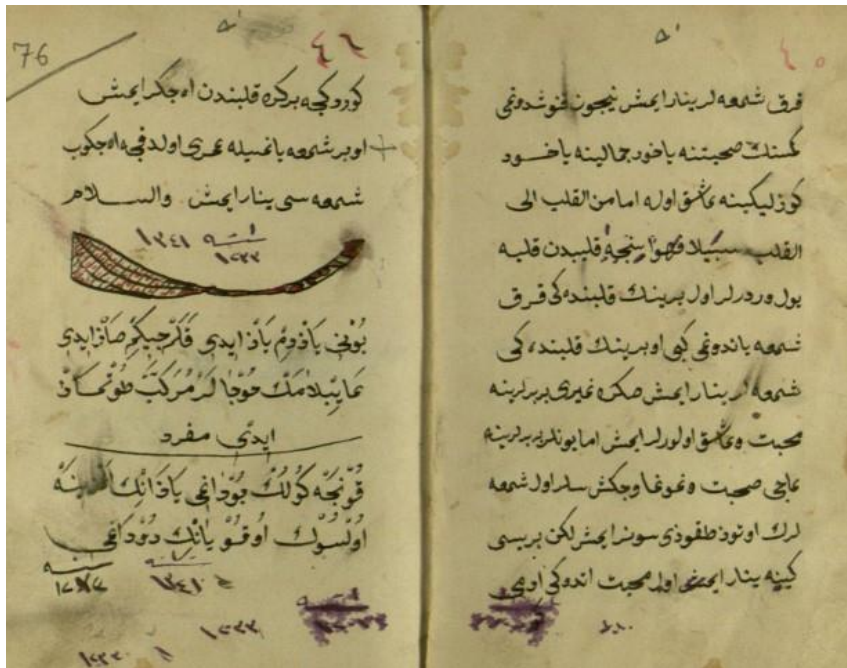 ٤٠
قرق شمعه لر ينار ايمش نيچون قنوشدوغى
كمسنك صحبتنه ياخود جمالينه ياخود
كوزليكينه عاشق اوله اما من القلب الى
القلب سبيلا قلبدن قلبه
يول وردرلر اول برينك قلبنده كى قرق
شمعه ياندوغى كبى او برينك قلبنده كى
شمعه لر ينار ايمش صكره غيرى بربرلرينه
محبت وعاشق اولورلر ايمش اما يونلر بربرلرينه
عاجى صحبت وغوغا وجكش سلر اول شمعه
لرك اوتوز طقوزى سونر ايمش لكن بريسى
كينه ينار ايمش اول محبت اندوكى
76
٤٦
كوردكجه بركره قلبندن اه جكر ايمش
او بر شمعه يانمسيله عمرى اولدقجه اه جكوب
شمعه سى ينار ايمش والسلام
سنه ١٢٤١
١٢٣٣
بونى يازدوم ياز ايدى قلرجيكم صاز ايدى
عايبلامك خوجالر مركب طوتماز
ايدى مفرد
قونجه كولك بوداغى يافانك
اولسون اوقويانك دوداغى
سنه
سنه ١٢٤١
١٢٣٣
١٢٣٣